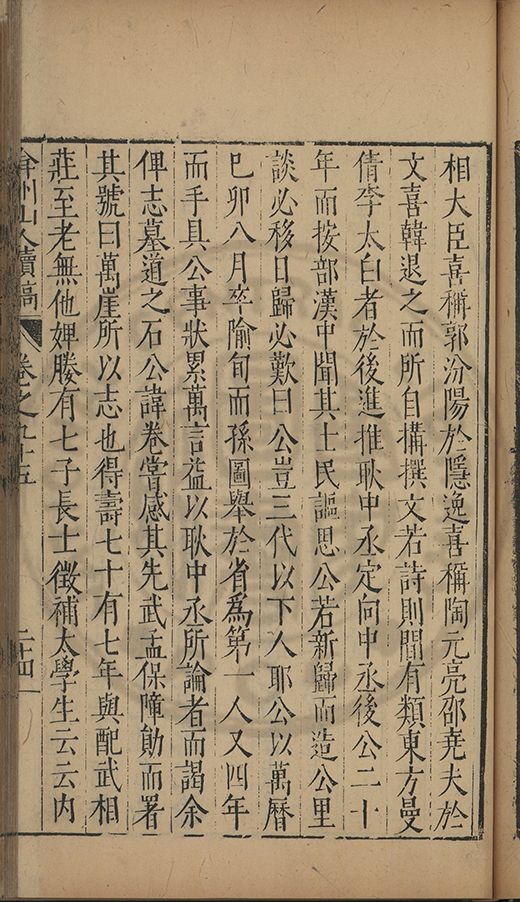 相大臣喜稱郭汾陽於隱逸喜稱陶元亮邵堯夫於
文喜韓退之而所自搆撰文若詩則間有類東方曼
倩李太白者於後進推耿中丞定向中丞後公二十
年而按部漢中聞其士民謳思公若新歸而造公里
談必移日歸必歎曰公豈三代以下人耶公以萬曆
巳卯八月卒隃旬而孫圖舉於省為第一人又四年
而手具公事狀累萬言益以耿中丞所論者而謁余
俾志墓道之石公諱卷嘗感其先武孟保障勛而署
其號曰萬崖所以志也得壽七十有七年與配武相
莊至老無他婢媵有七子長士徵補太學生云云内
弇州山人續稿 卷之九十五 二十四